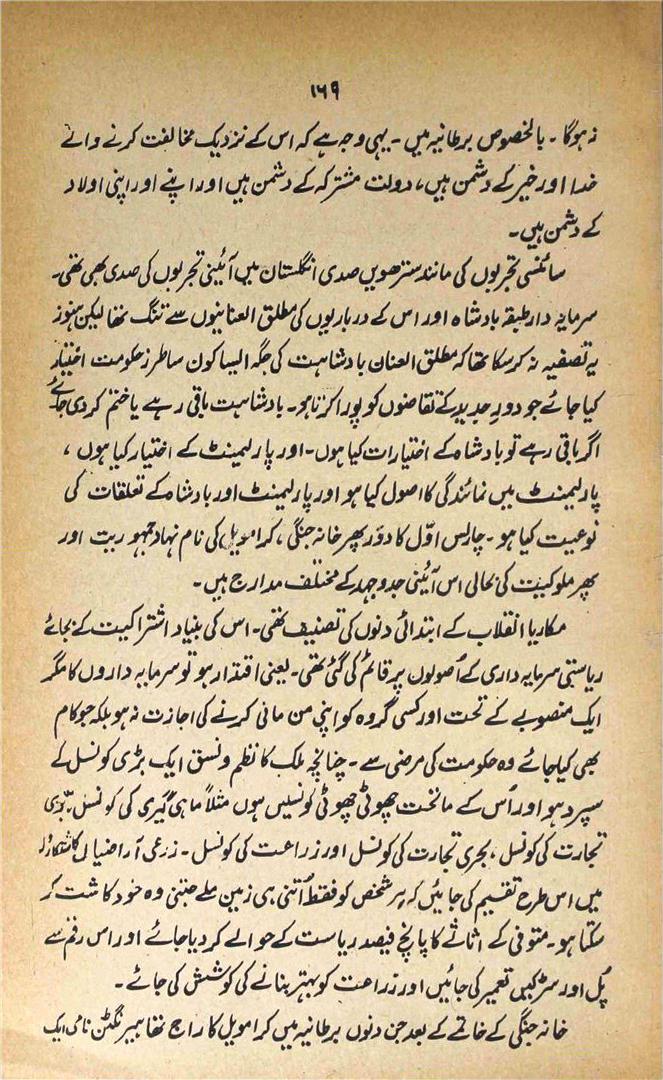 ۱۶۹
نہ ہوگا ۔ بالخصوص برطانیہ میں ۔ یہی وجہ ہے کہ اس کے نزدیک مخالفت کرنے والے
خدا اور خیر کے دشمن ہیں، دولت مشترکہ کے دشمن ہیں اور اپنے اور اپنی اولاد
کے دشمن ہیں۔
سائنسی تجربوں کی مانند سترھویں صدی انگلستان میں آئینی تجربوں کی صدی بھی تھی۔
سرمایہ دار طبقہ بادشاہ اور اس کے درباریوں کی مطلق العنانیوں سے تنگ تھا لیکن ہنوز
یہ تصفیہ نہ کرسکا تھا کہ مطلق العنان بادشاہت کی جگہ ایسا کون سا طرز حکومت اختیار
کیا جائے جو دورِ جدید کے تقاضوں کو پورا کرتا ہو۔ بادشاہت باقی رہے یا ختم کر دی جائے
اگر باقی رہے تو بادشاہ کے اختیارات کیا ہوں۔ اور پارلیمنٹ کے اختیار کیا ہوں ،
پارلیمنٹ میں نمائندگی کا اصول کیا ہو اور پارلیمنٹ اور بادشاہ کے تعلقات کی
نوعیت کیا ہو ۔ چارلس اوّل کا دَور پھر خانہ جنگی ، کرامویل کی نام نہاد جمہوریت اور
پھر ملوکیت کی بحالی اس آئینی جدوجہد کے مختلف مدارج ہیں۔
مکاریا انقلاب کے ابتدائی دنوں کی تصنیف تھی۔ اس کی بنیاد اشتراکیت کے بجائے
ریاستی سرمایہ داری کے اُصولوں پر قائم کی گئی تھی۔ یعنی اقتدار ہو تو سرمایہ داروں کا مگر
ایک منصوبے کے تحت اور کسی گروہ کو اپنی من مانی کرنے کی اجازت نہ ہو بلکہ جو کام
بھی کیا جائے وہ حکومت کی مرضی سے ۔ چنانچہ ملک کا نظم و نسق ایک بڑی کونسل کے
سپرد ہو اور اُس کے ماتحت چھوٹی چھوٹی کونسلیں ہوں مثلاً ماہی گیری کی کونسل، بَرّی
تجارت کی کونسل ، بحری تجارت کی کونسل اور زراعت کی کونسل ۔ زرعی آراضیاں کاشتکاروں
میں اس طرح تقسیم کی جائیں کہ ہر شخص کو فقط اُتنی ہی زمین ملے جتنی وہ خود کاشت کر
سکتا ہو ۔ متوفی کے اثاثے کا پانچ فیصد ریاست کے حوالے کر دیا جائے اور اس رقم سے
پُل اور سڑکیں تعمیر کی جائیں اور زراعت کو بہتر بنانے کی کوشش کی جائے ۔
خانہ جنگی کے خاتمے کے بعد جن دنوں برطانیہ میں کرامویل کا راج تھا ہیرنگٹن نامی ایک